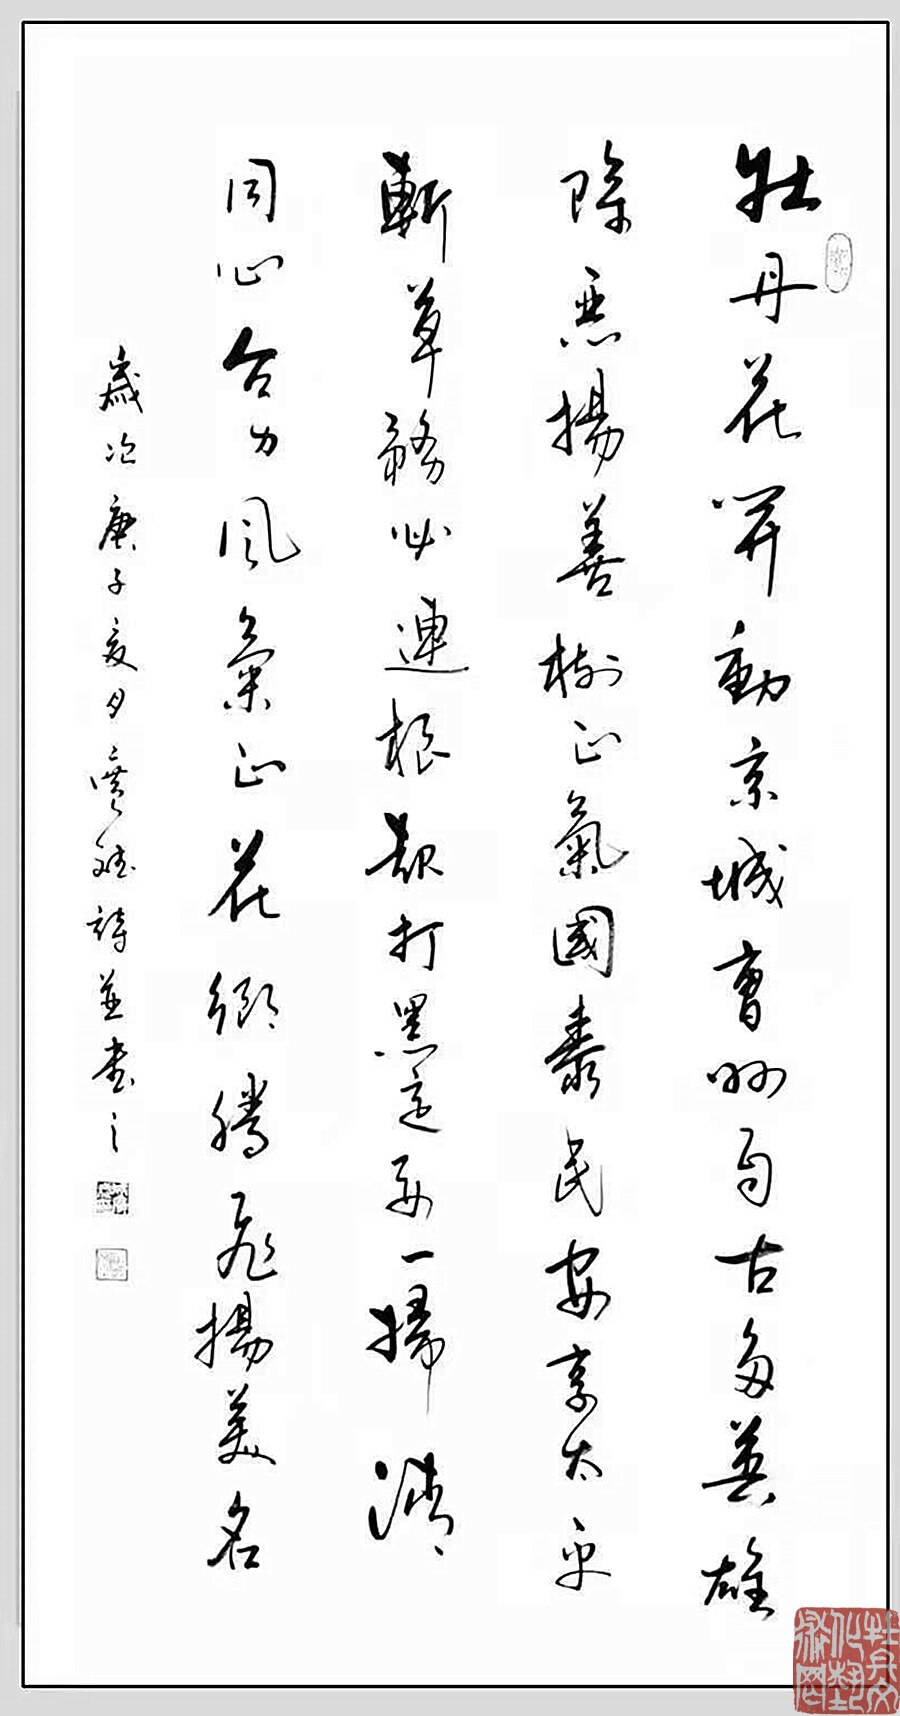 牡丹花開動京城曹州自古多英雄
除惡揚善樹正氣國泰民安享太平
斬草務必連根打黑定要一掃清
同心合力風氣正花鄉騰飛揚美名
歲次庚子夏月詩並書之
牡丹文化藝術网